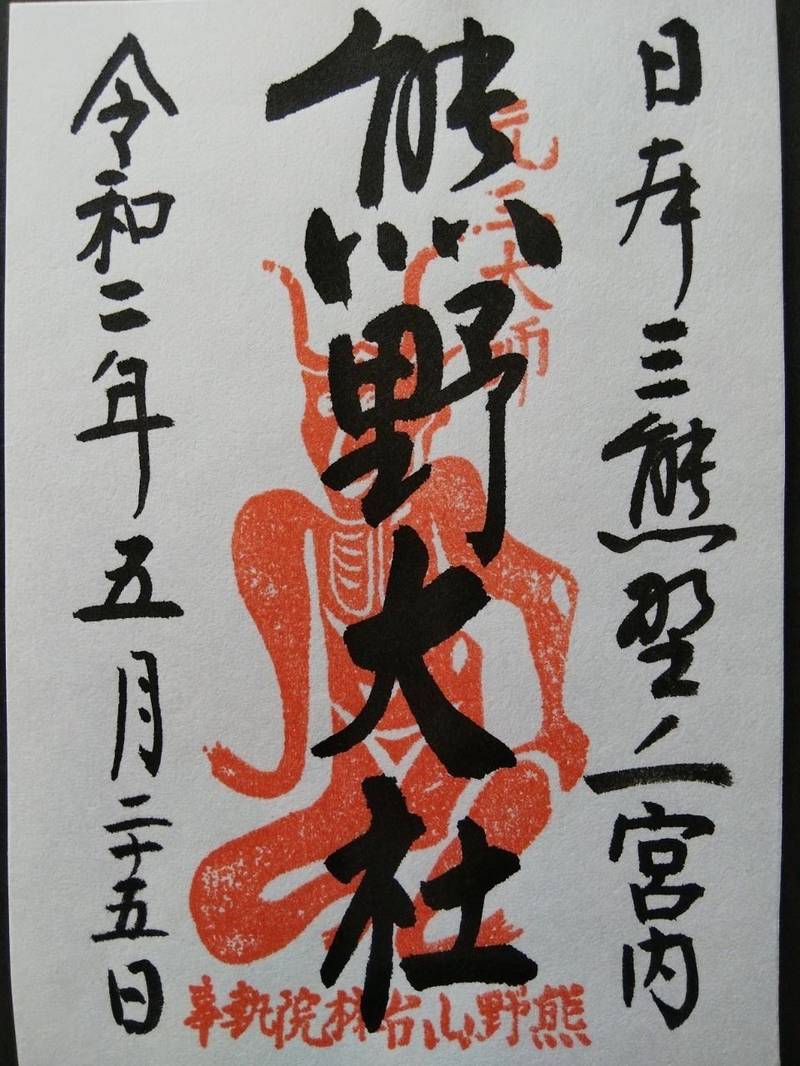 日本三熊野ノ一宮内
元三大師
熊野大社
令和二年五月二十五日
熊野山台林院執事